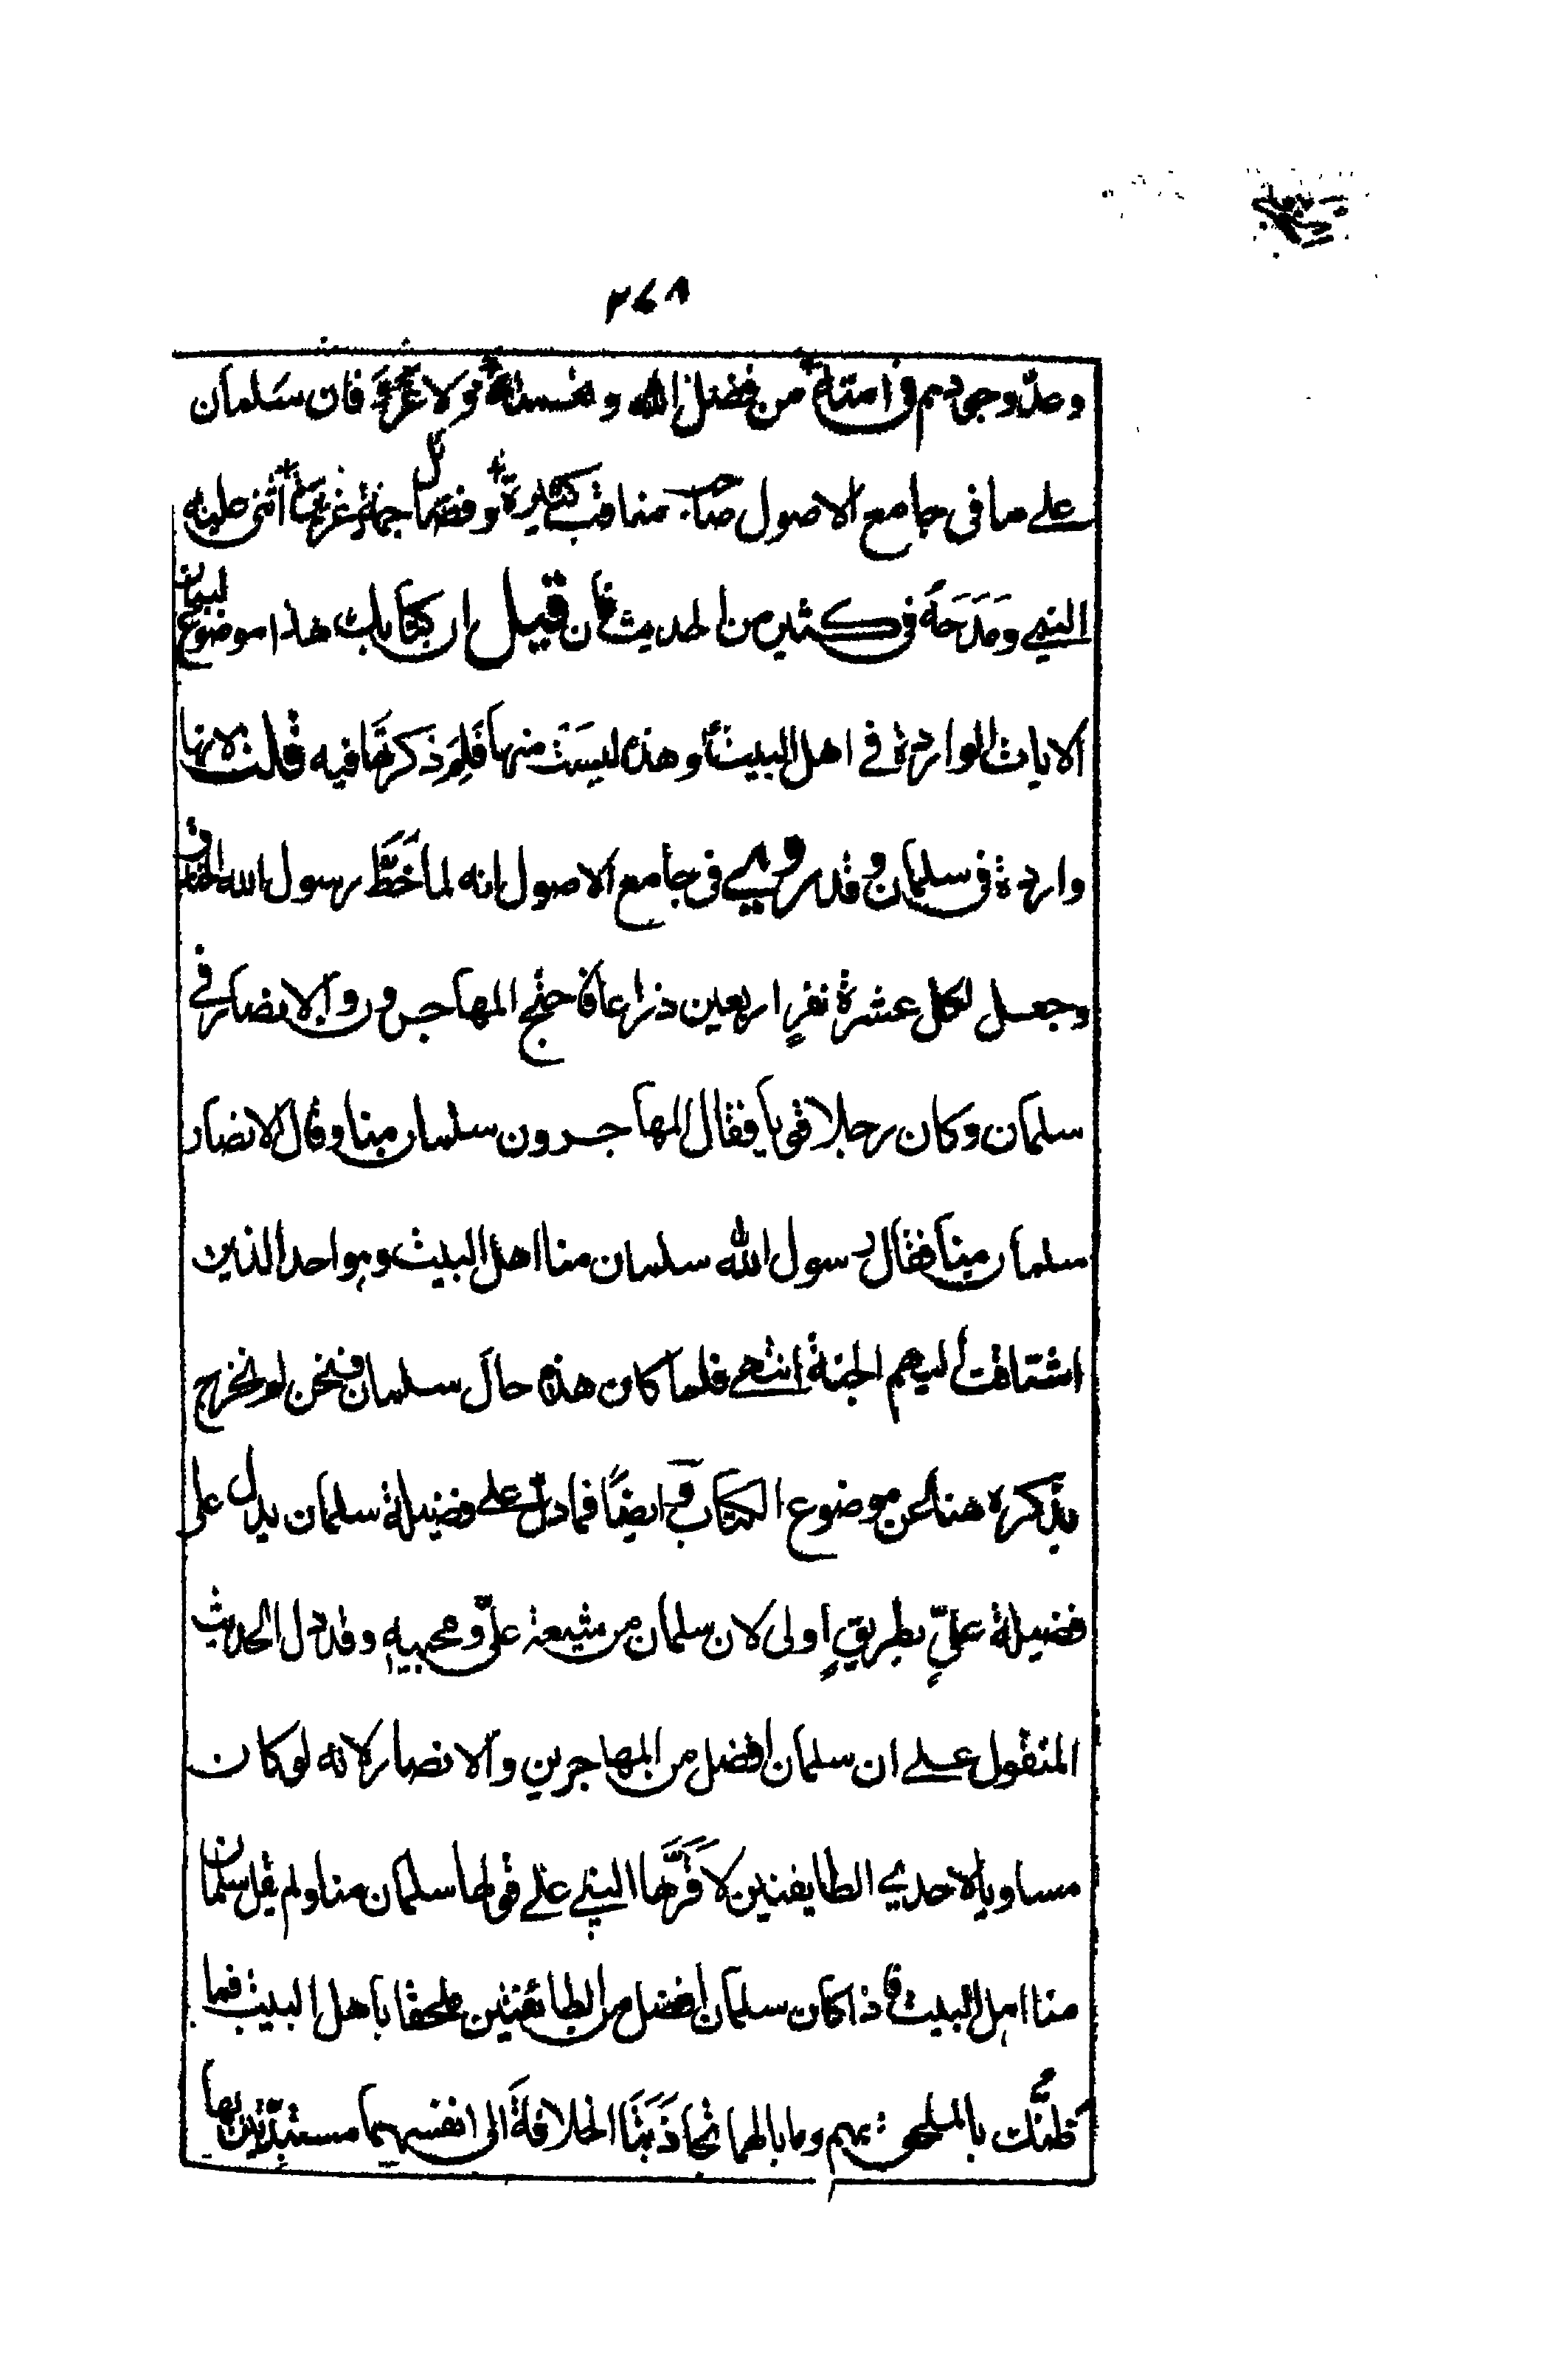 ٢٤٨
وعدّ وجودهم فى امته من فضل الله و ولا غرو فان سلمان
على ما فى جامع الاصول صاحب مناقب كثيرة وفضائل جمة غزيرة اثنى عليه
النبي ومدحه فى كثير من الحديث فان قيل ان كتابك هذا موضوع لبيان
الايات الواردة في اهل البيت وهذه ليست منها فلم ذكرتها فيه قلت لانها
واردة فى سلمان وقد روي فى جامع الاصول انه لما خطّ رسول الله الخندق
وجعل لكل عشرة نفرٍ اربعين ذراعا فاحتج المهاجرون والانصار في
سلمان وكان رجلا قويا فقال المهاجرون سلمان منا وقال الانصار
سلمان منا فقال رسول الله سلمان منا اهل البيت وهو احد الذين
اشتاقت اليهم الجنة انتهى فلما كان هذه حال سلمان فنحن لم نخرج
بذكره هنا عن موضوع الكتاب وايضاً فما دلّ على فضيلة سلمان يدل على
فضيلة عليٍّ بطريقٍ اولى لان سلمان من شيعة علىّ ومحبيه وقد دل الحديث
المنقول على ان سلمان افضل من المهاجرين والانصار لانه لو كان
مساويا لاحدي الطايفتين لاَقَرَّها النبي على قولها سلمان منا ولم يقل سلمان
منا اهل البيت فاذا كان سلمان افضل من الطائفتين ملحقا باهل البيت فما
ظنّك بالملحق بهم وما بالهما تجاذبتا الخلافة الى انفسهما مستبدّتين بها